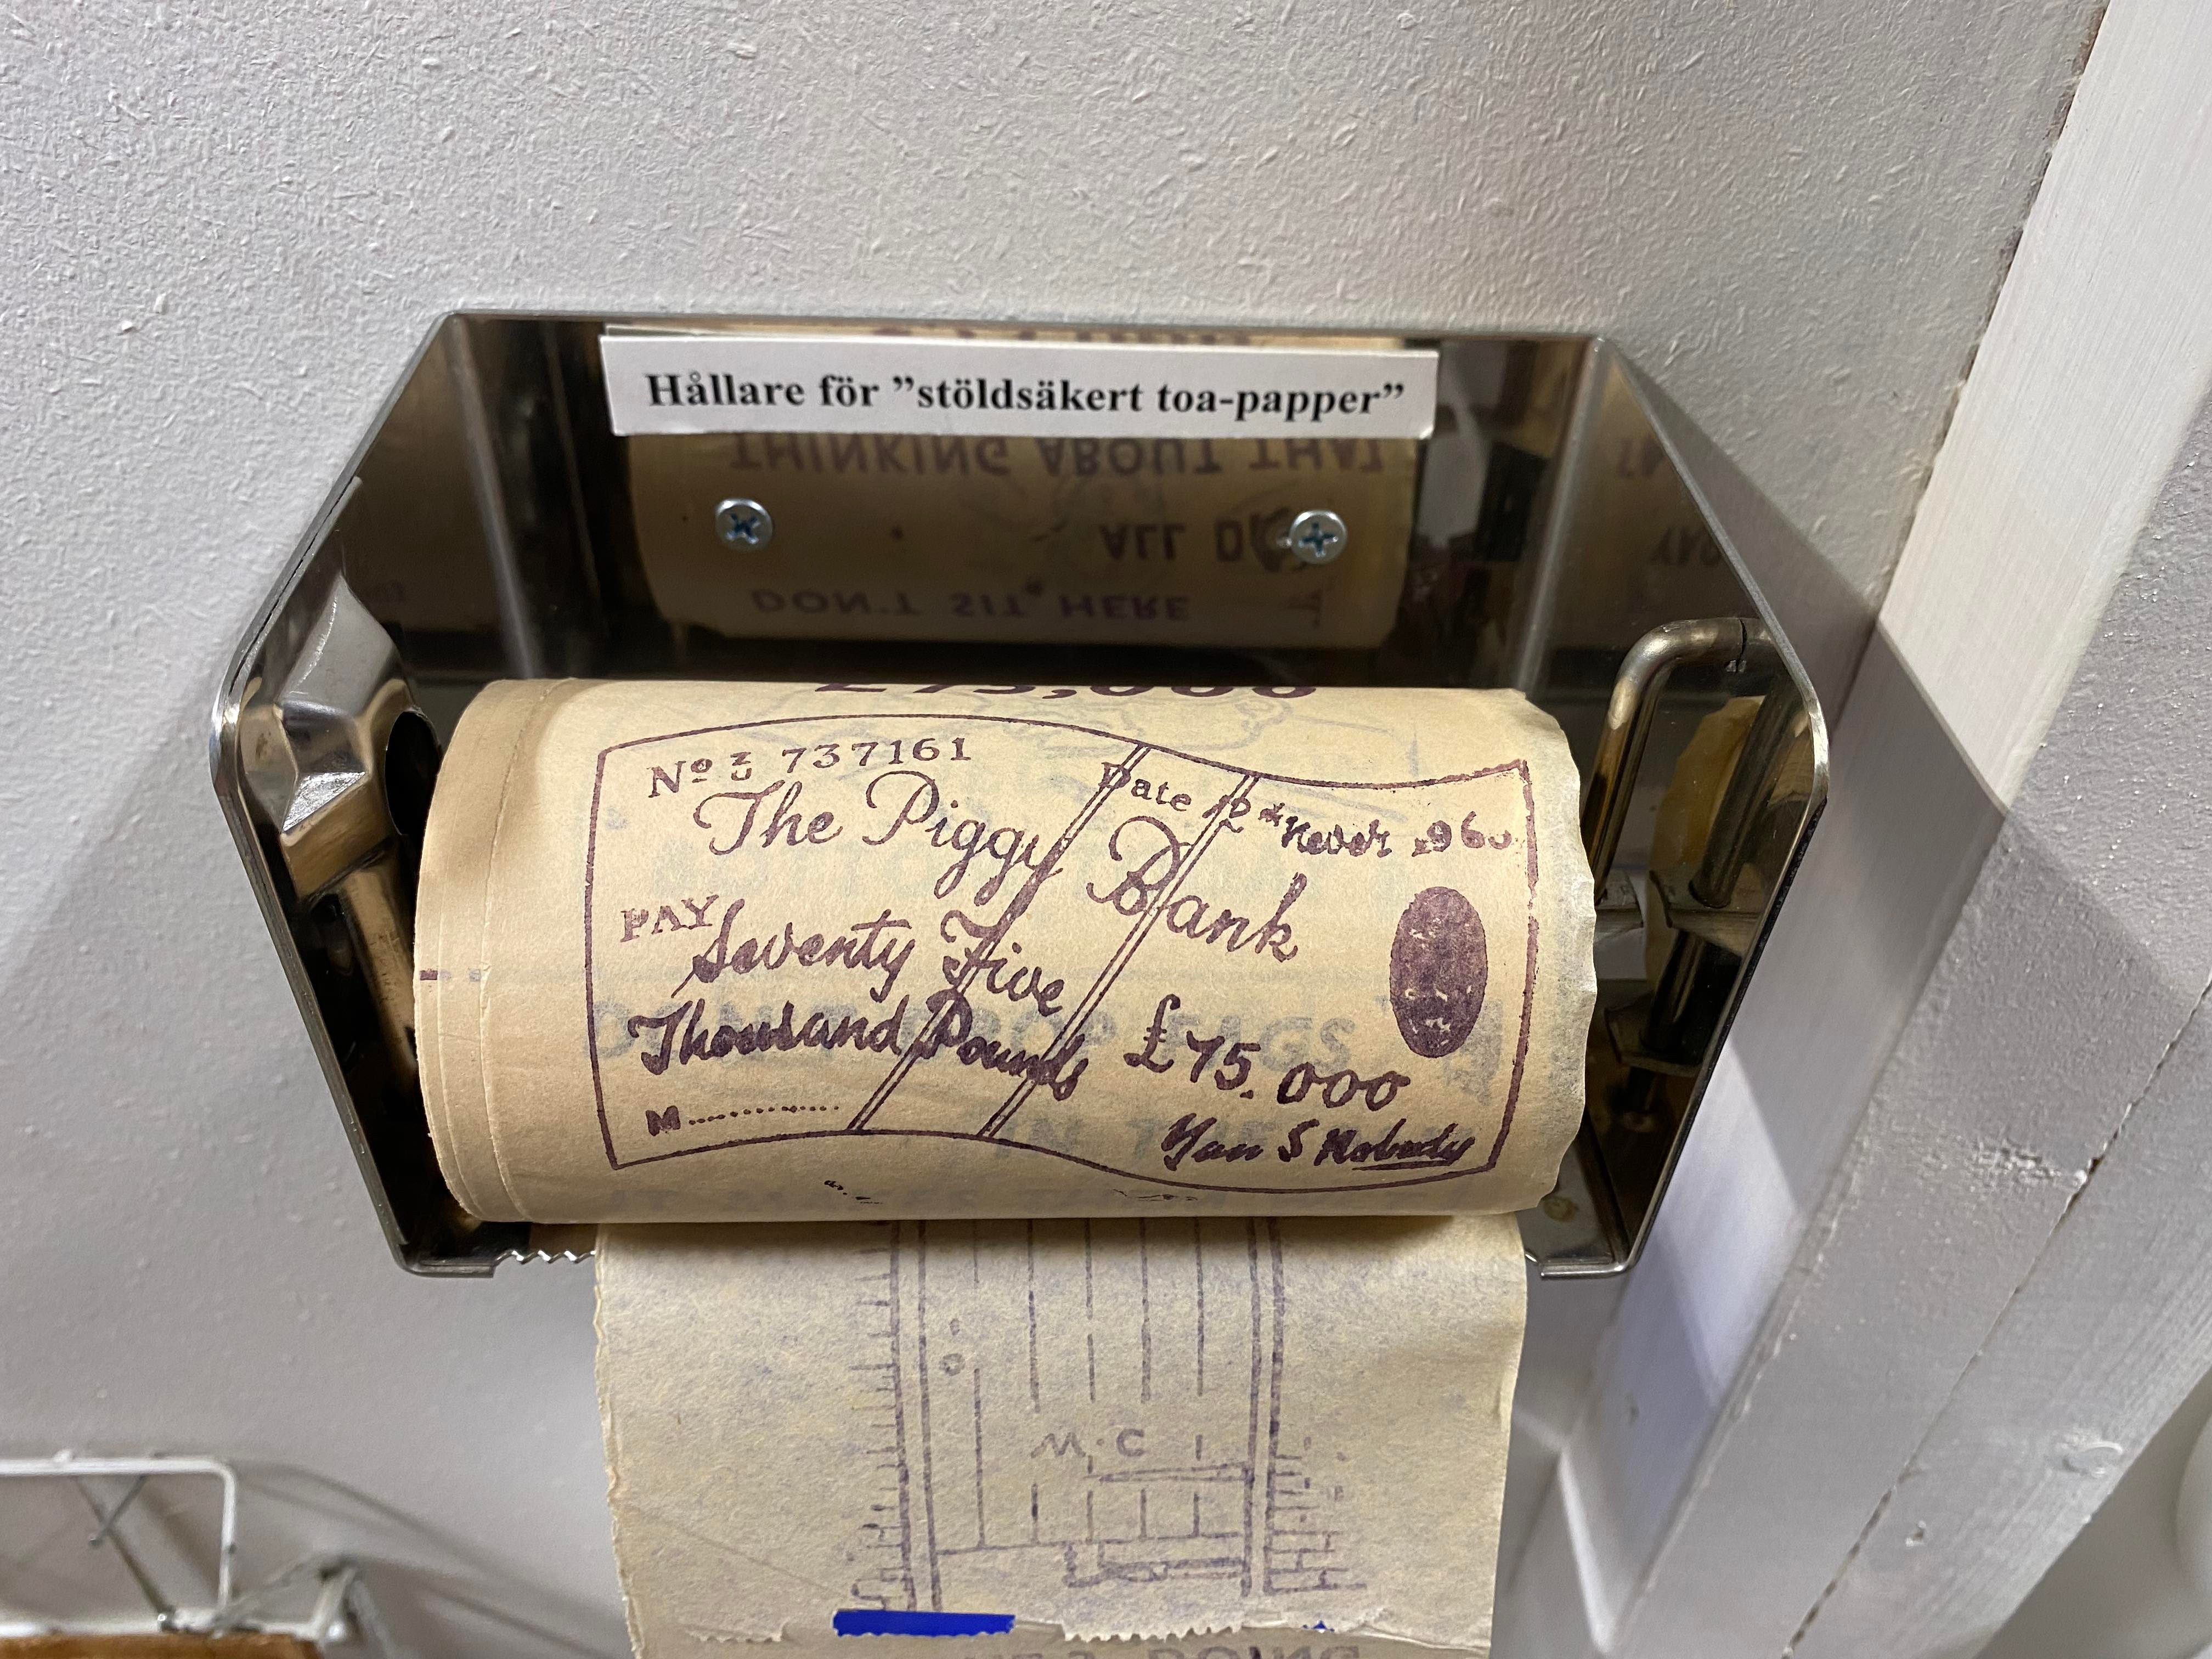 Hållare för ”stöldsäkert toa-papper”
THINKING ABOUT THAT
ALL
DON'T SIT HERE
£75,000
Nº 737161
Date never 1960
The Piggy Bank
PAY Seventy Five
Thousand Pounds £75.000
M
Yan S Nobody
W.C
DOING